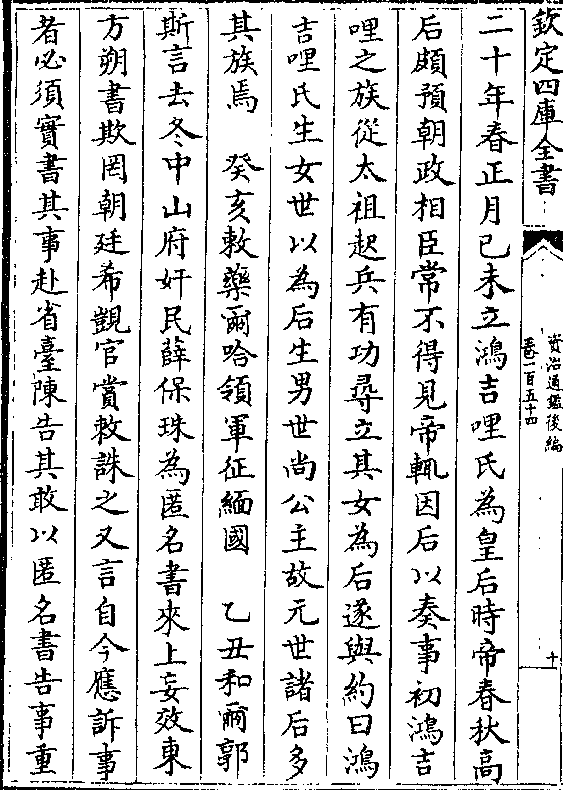 欽定四庫全書
資治通鑑後編
卷一百五十四
十
二十年春正月己未立鴻吉哩氏為皇后時帝春秋高
后頗預朝政相臣常不得見帝輒因后以奏事初鴻吉
哩之族從太祖起兵有功尋立其女為后遂與約曰鴻
吉哩氏生女世以為后生男世尚公主故元世諸后多
其族焉　癸亥敕藥爾哈領軍征緬國　乙丑和爾郭
斯言去冬中山府奸民薛保珠為匿名書來上妄效東
方朔書欺罔朝廷希覬官賞敕誅之又言自今應訴事
者必須實書其事赴省臺陳告其敢以匿名書告事重